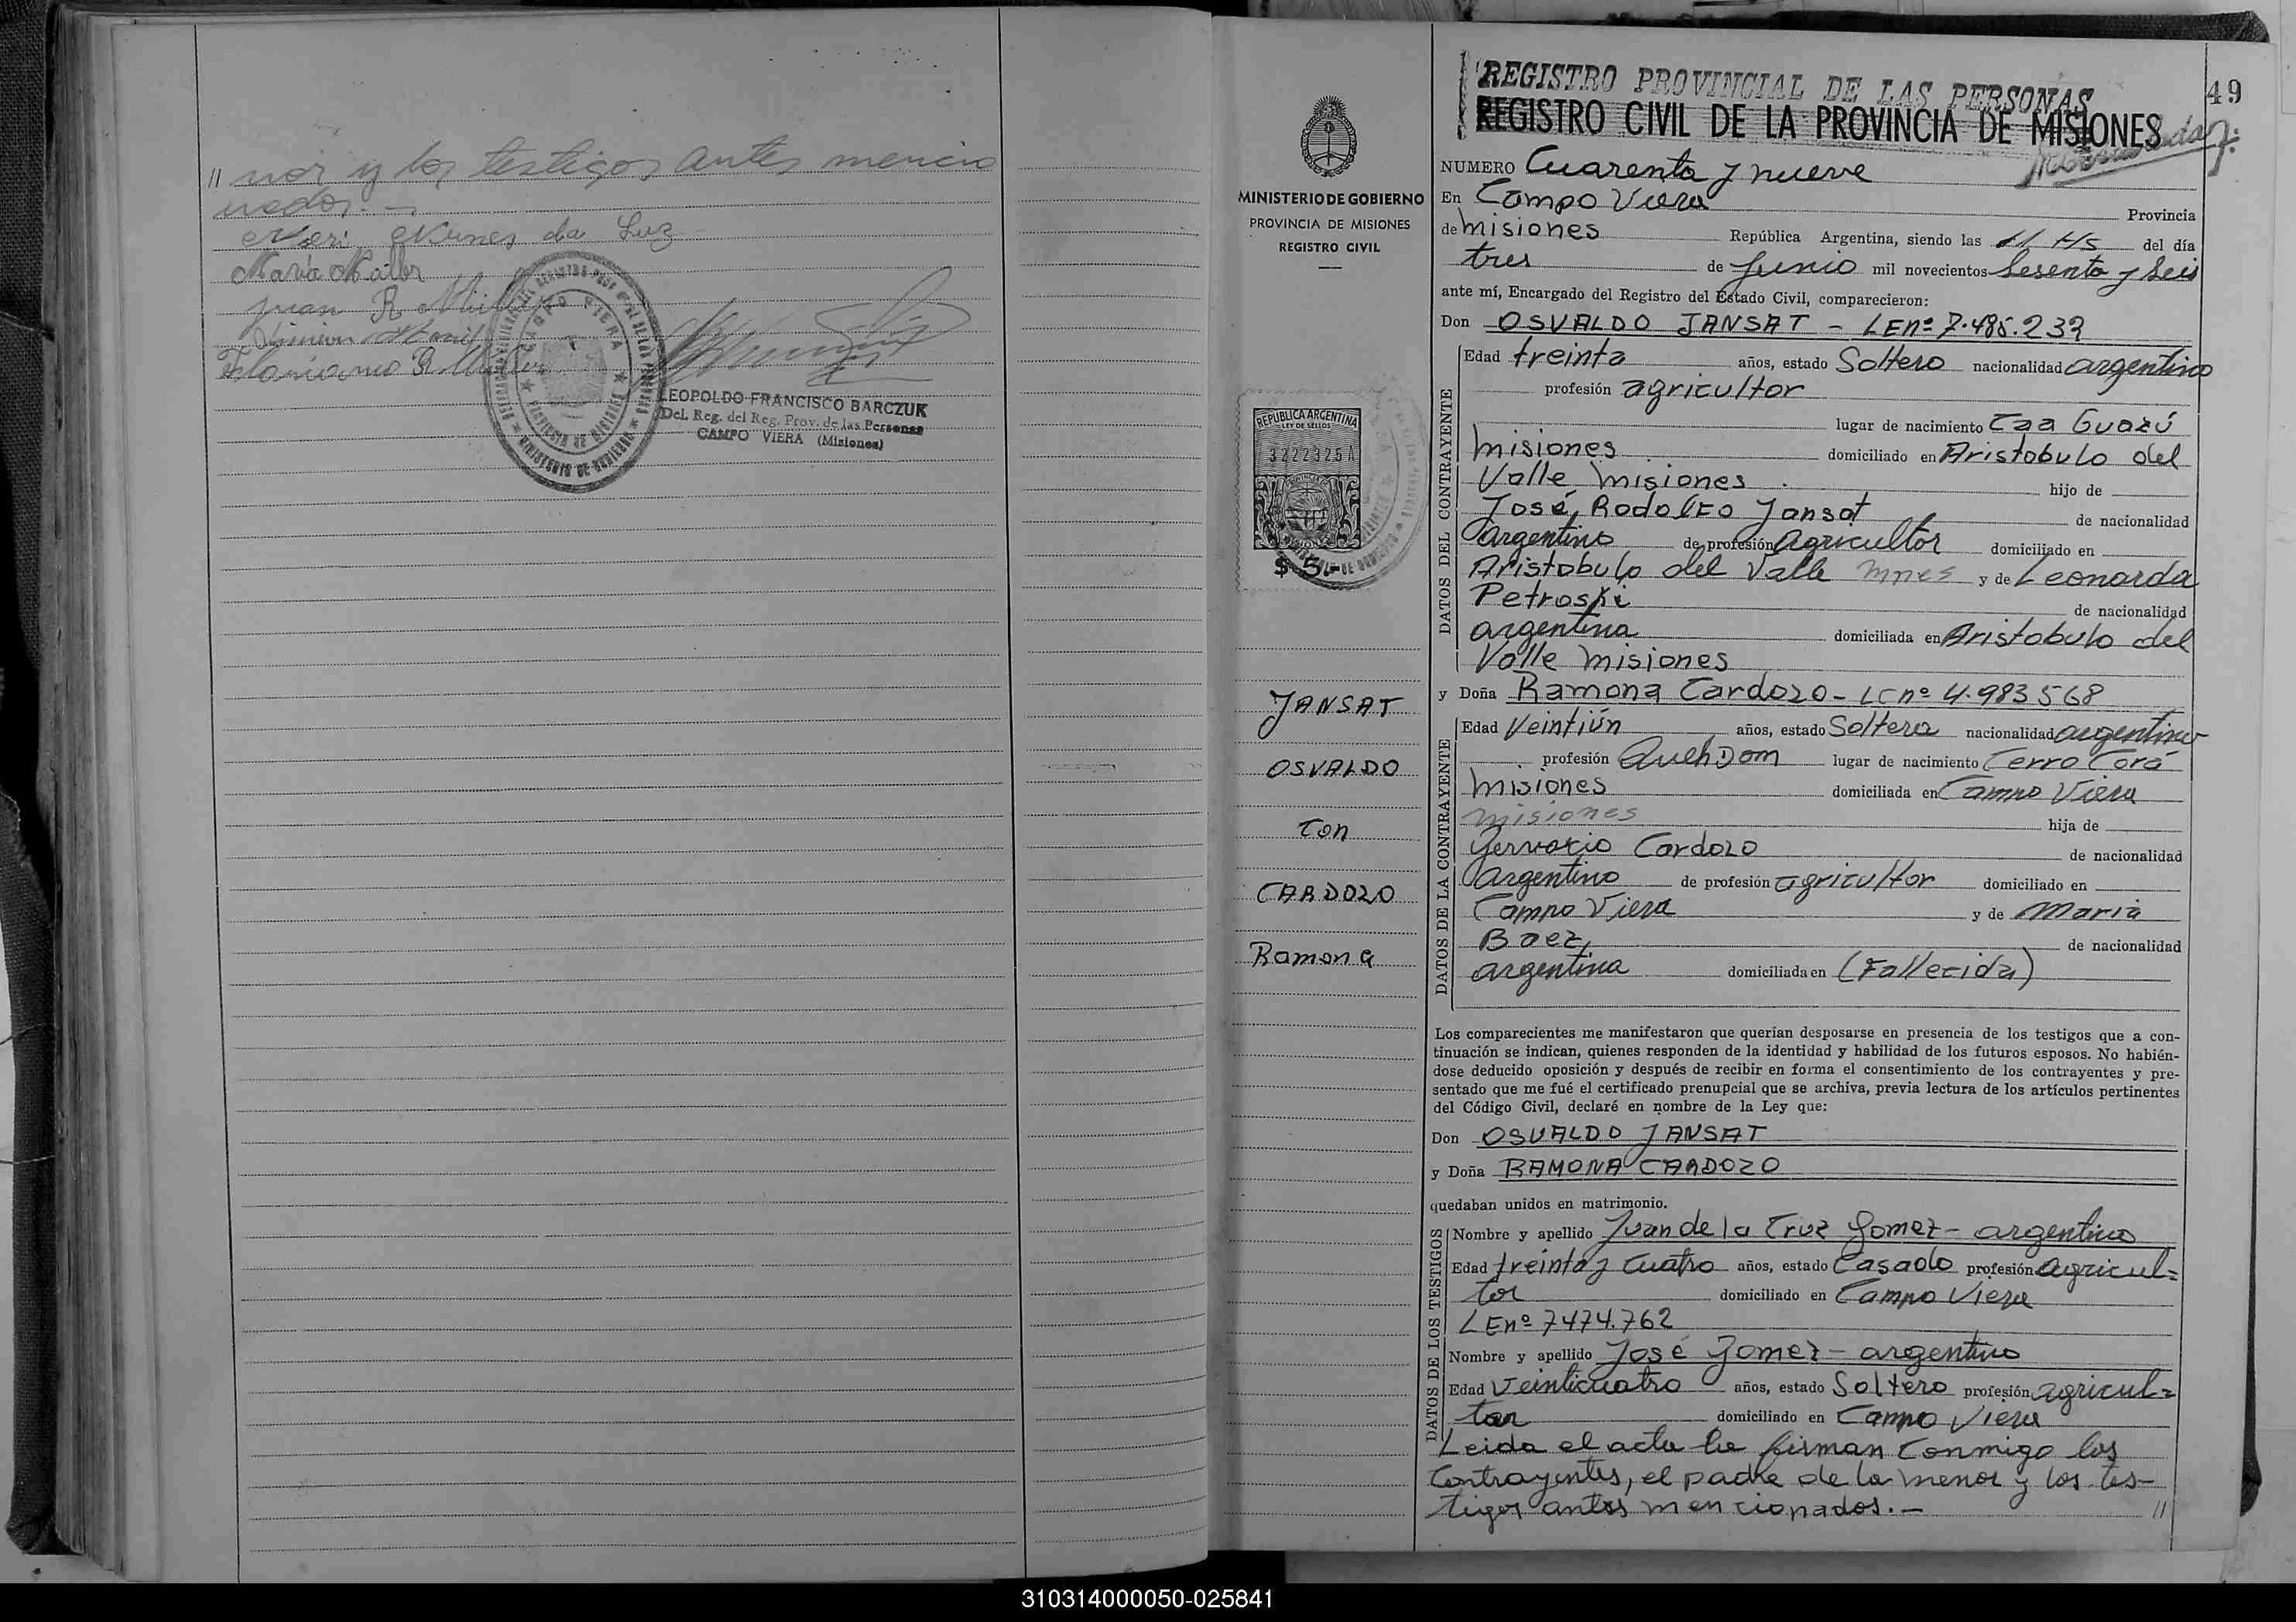 // nor y los testigos antes mencio
nados.-
Neri Nunes da Luz
María
Juan R
Floriano R
LEOPOLDO FRANCISCO BARCZUK
Del. Reg. del Reg. Prov. de las Personas
CAMPO VIERA (Misiones)
MINISTERIO DE GOBIERNO
PROVINCIA DE MISIONES
REGISTRO CIVIL
REPUBLICA ARGENTINA
LEY DE SELLOS
3222325A
$ 5.-
JANSAT
OSVALDO
Con
CARDOZO
Ramona
REGISTRO PROVINCIAL DE LAS PERSONAS
49
REGISTRO CIVIL DE LA PROVINCIA DE MISIONES
NUMERO Cuarenta y nueve
En Campo Viera Provincia
de misiones República Argentina, siendo las 11 Hs del día
tres de Junio mil novecientos Sesenta y Seis
ante mí, Encargado del Registro del Estado Civil, comparecieron:
Don OSVALDO JANSAT - LEnº 7.485.232
DATOS DEL CONTRAYENTE
Edad treinta años, estado Soltero nacionalidad argentino
profesión agricultor
lugar de nacimiento Caa Guazú
misiones domiciliado en Aristobulo del
Valle misiones. hijo de
José Rodolfo Jansat de nacionalidad
argentino de profesión Agricultor domiciliado en
Aristobulo del Valle mnes y de Leonarda
Petroski de nacionalidad
argentina domiciliada en Aristobulo del
Valle misiones
y Doña Ramona Cardozo - LC nº 4.983568
DATOS DE LA CONTRAYENTE
Edad Veintiún años, estado Soltera nacionalidad argentina
profesión QuehDom lugar de nacimiento Cerro Corá
misiones domiciliada en Campo Viera
misiones hija de
Gervacio Cardozo de nacionalidad
argentino de profesión agricultor domiciliado en
Campo Viera y de Maria
Baez de nacionalidad
argentina domiciliada en (Fallecida)
Los comparecientes me manifestaron que querían desposarse en presencia de los testigos que a con-
tinuación se indican, quienes responden de la identidad y habilidad de los futuros esposos. No habién-
dose deducido oposición y después de recibir en forma el consentimiento de los contrayentes y pre-
sentado que me fué el certificado prenupcial que se archiva, previa lectura de los artículos pertinentes
del Código Civil, declaré en nombre de la Ley que:
Don OSVALDO JANSAT
y Doña RAMONA CARDOZO
quedaban unidos en matrimonio.
DATOS DE LOS TESTIGOS
Nombre y apellido Juan de la Cruz Gomez - argentino
Edad treinta y cuatro años, estado Casado profesión agricul=
tor domiciliado en Campo Viera
LEnº 7474.762
Nombre y apellido José Gomez - argentino
Edad Veinticuatro años, estado Soltero profesión agricul=
tor domiciliado en Campo Viera
Leida el acta la firman conmigo los
contrayentes, el padre de la menor y los tes-
tigos antes mencionados.- //
310314000050-025841